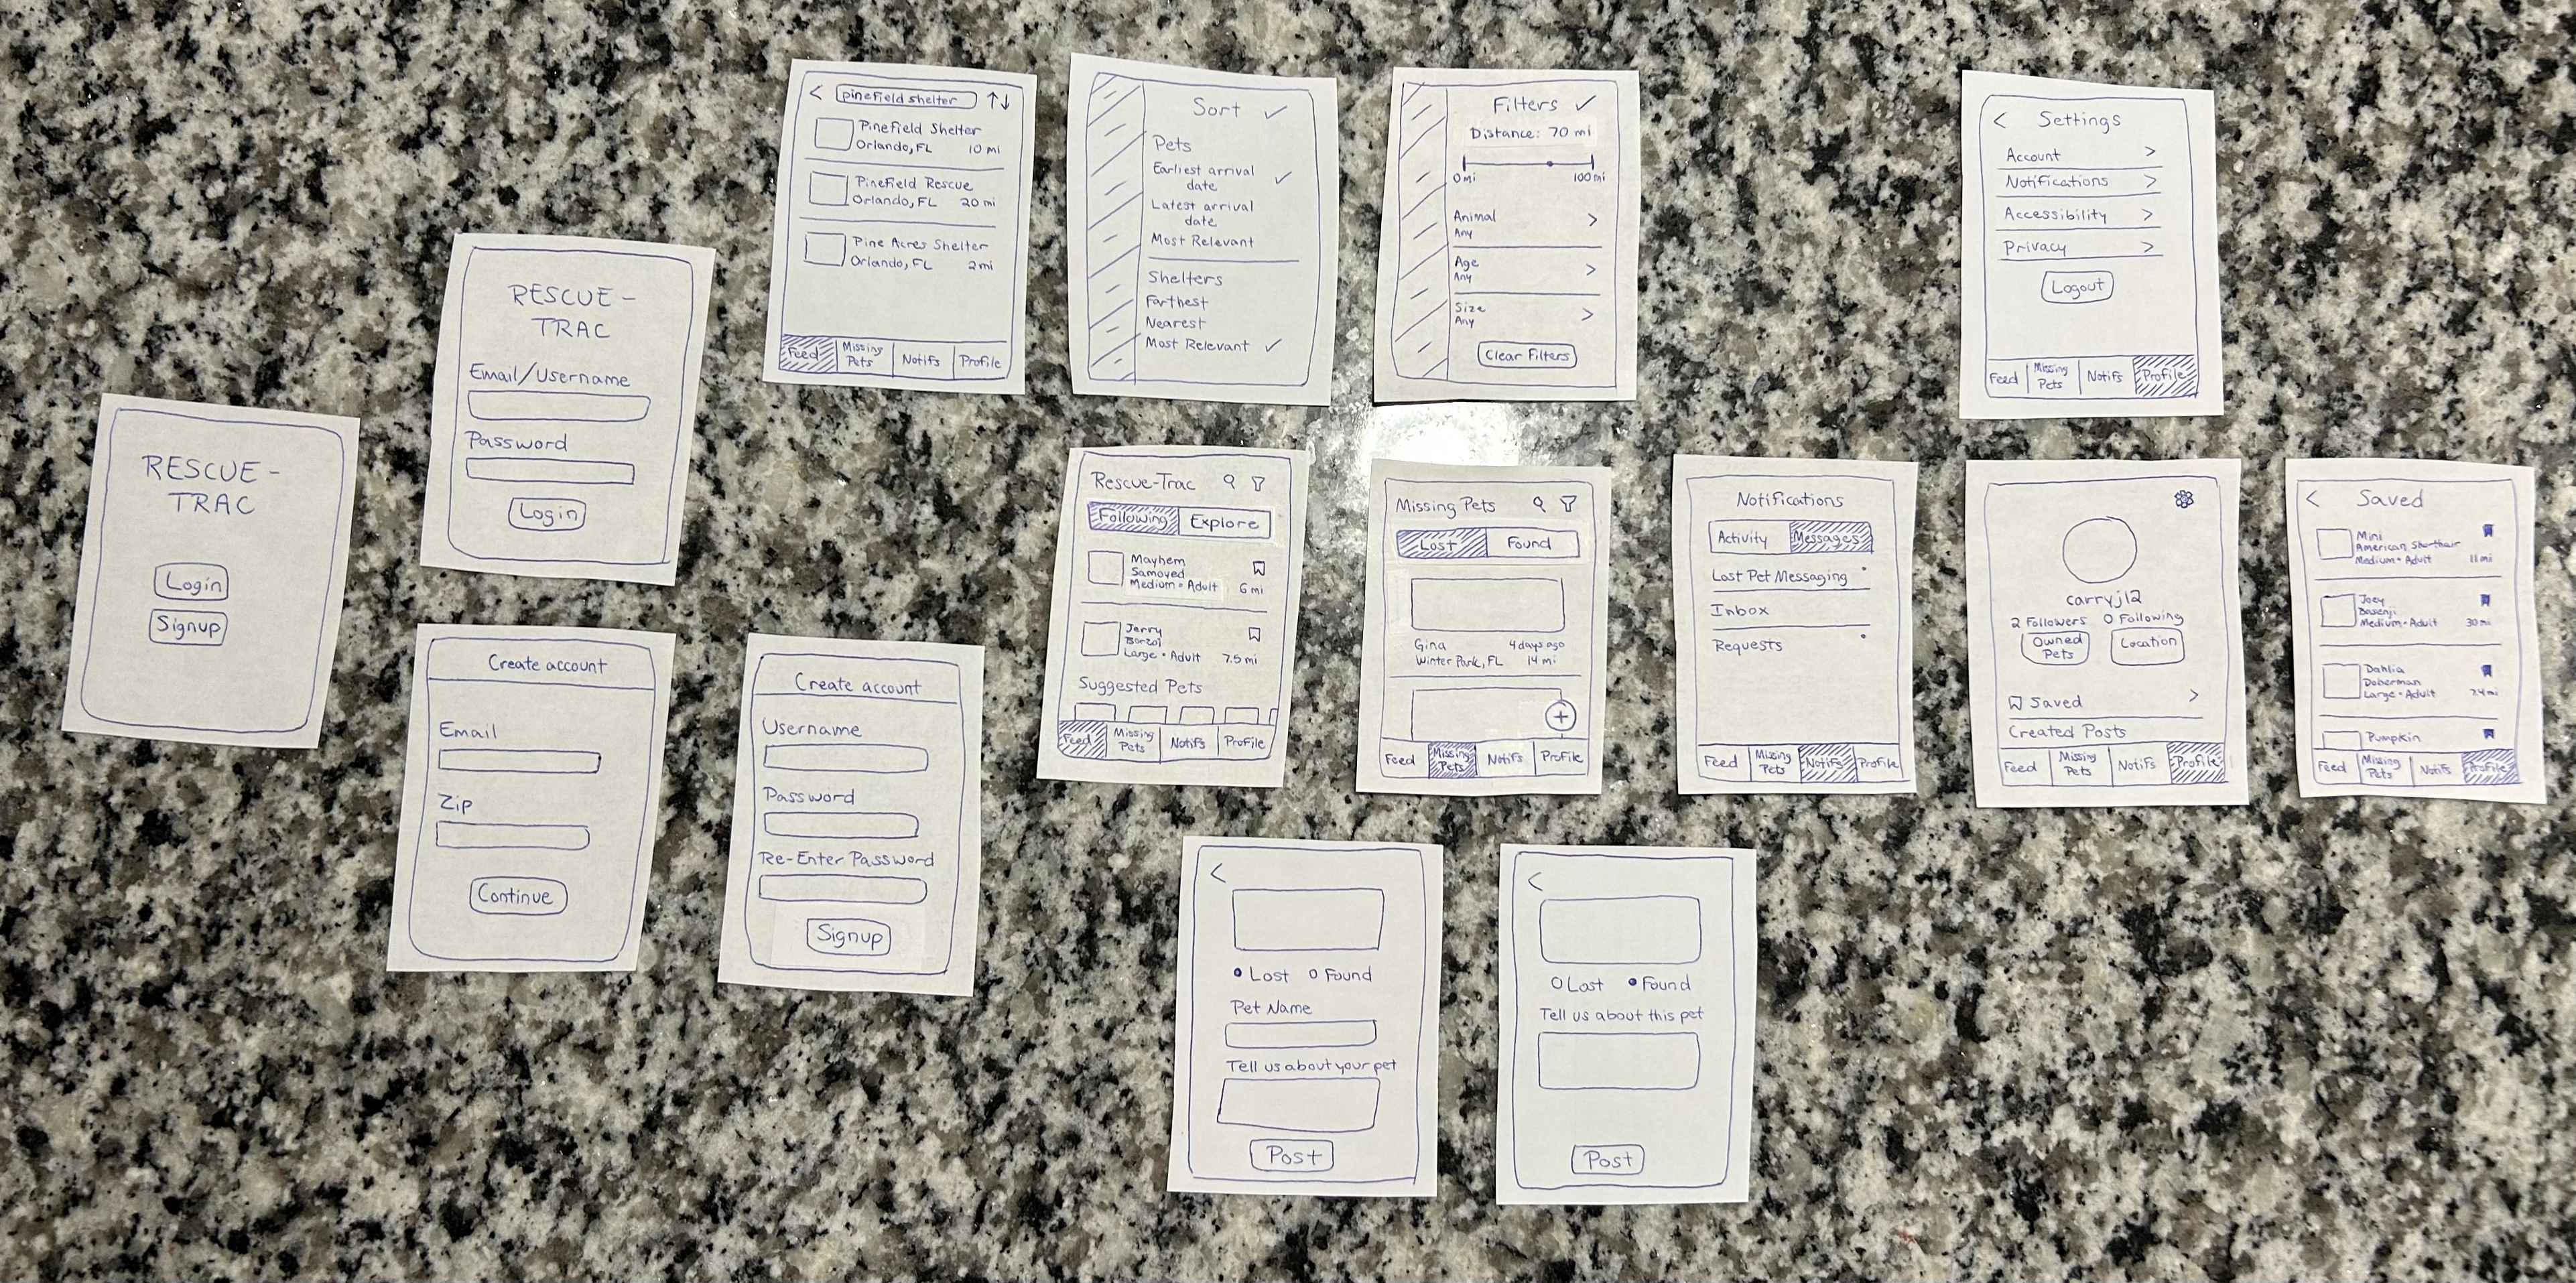 RESCUE-
TRAC
Login
Signup
RESCUE-
TRAC
Email/Username
Password
Login
Create account
Email
Zip
Continue
Create account
Username
Password
Re-Enter Password
Signup
< pinefield shelter ↑↓
Pinefield Shelter
Orlando, FL 10 mi
Pinefield Rescue
Orlando, FL 20 mi
Pine Acres Shelter
Orlando, FL 2 mi
Feed Missing Pets Notifs Profile
Sort ✓
Pets
Earliest arrival
date ✓
Latest arrival
date
Most Relevant
Shelters
Farthest
Nearest
Most Relevant ✓
Filters ✓
Distance: 70 mi
0 mi 100 mi
Animal >
Any
Age >
Any
Size >
Any
Clear Filters
< Settings
Account >
Notifications >
Accessibility >
Privacy >
Logout
Feed Missing Pets Notifs Profile
Rescue-Trac
Following Explore
Mayhem
Samoyed
Medium • Adult 6 mi
Jerry
Borzoi
Large • Adult 7.5 mi
Suggested Pets
Feed Missing Pets Notifs Profile
Missing Pets
Lost Found
Gina 4 days ago
Winter Park, FL 14 mi
+
Feed Missing Pets Notifs Profile
Notifications
Activity Messages
Lost Pet Messaging
Inbox
Requests
Feed Missing Pets Notifs Profile
carryj12
2 Followers 0 Following
Owned
Pets
Location
Saved >
Created Posts
Feed Missing Pets Notifs Profile
< Saved
Mini
American Shorthair
Medium • Adult 11 mi
Joey
Basenji
Medium • Adult 30 mi
Dahlia
Doberman
Large • Adult 24 mi
Pumpkin
Feed Missing Pets Notifs Profile
<
Lost Found
Pet Name
Tell us about your pet
Post
<
Lost Found
Tell us about this pet
Post